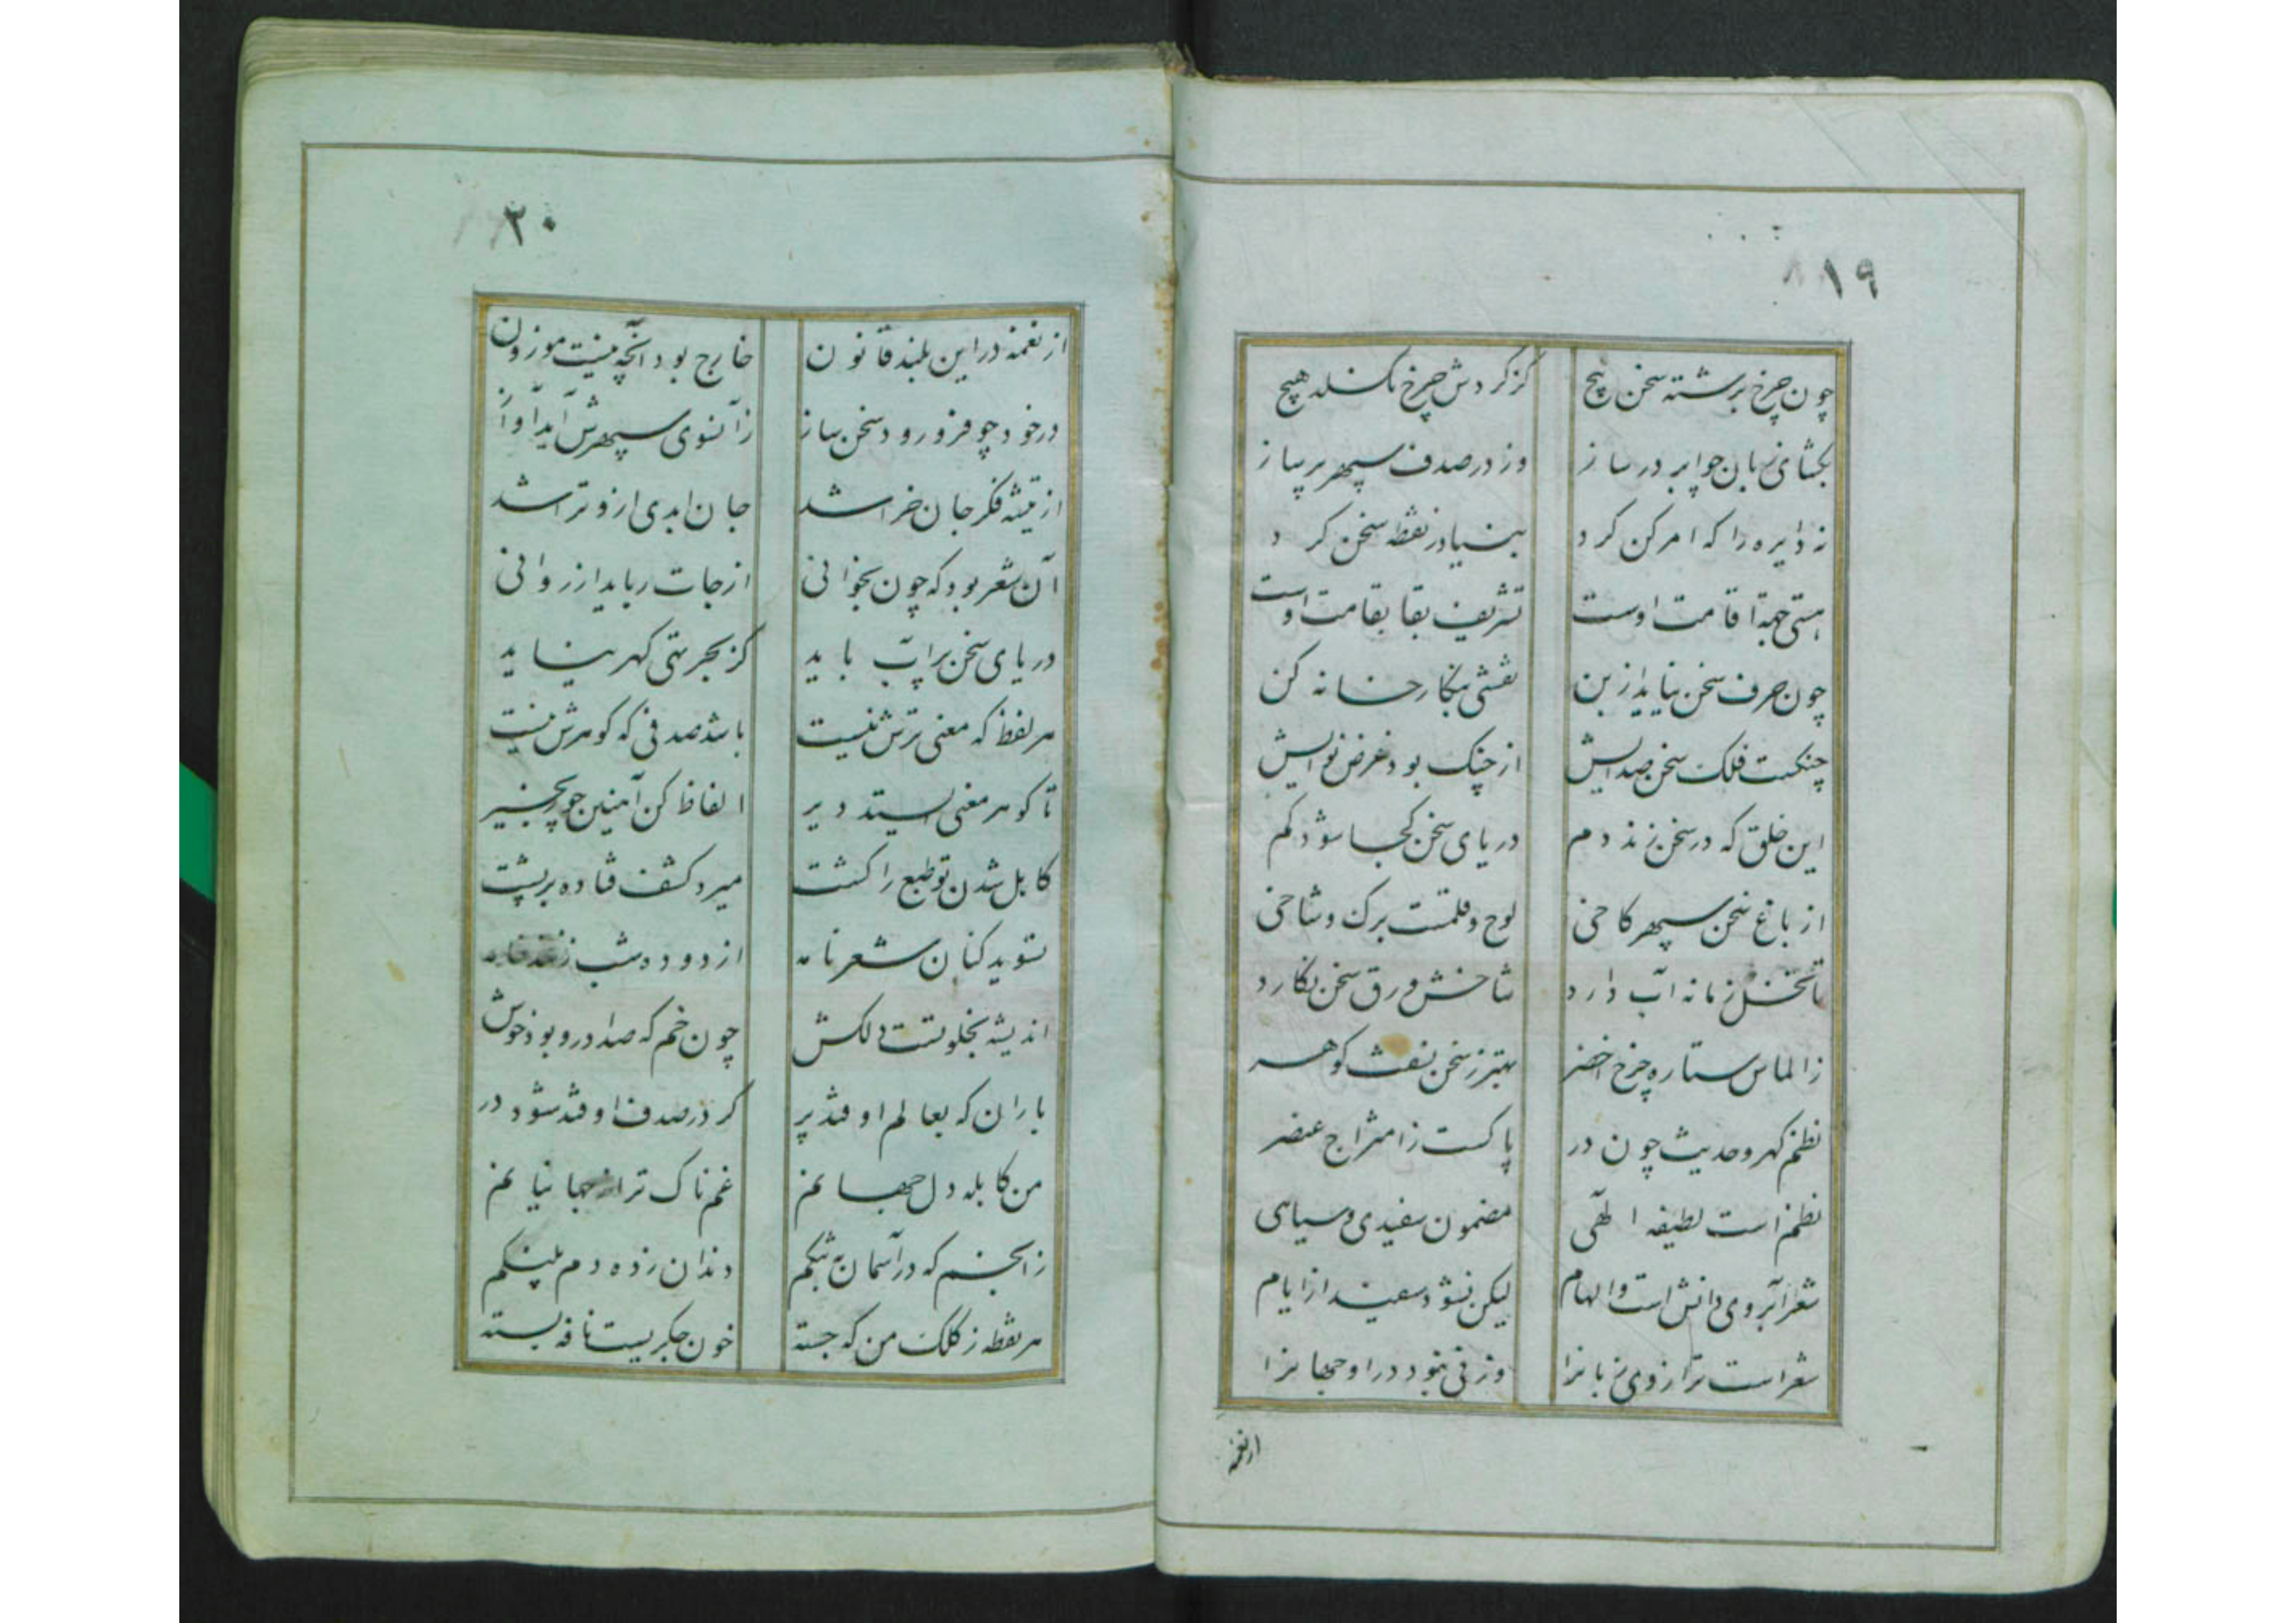 ۱۹
چون چرخ برشته سخن پیچ کز کردش چرخ نکسلد هیچ
بکشای زبان چو ابر درساز وز در صدف سپهر پرساز
نه دایره را که امر کن کرد بنیاد ز نقطه سخن کرد
هستی همه تا قامت اوست تشریف بقا بقامت اوست
چون حرف سخن نیاید از بن نقشی بنکارخانه کن
چنکست فلک سخن صدایش از چنک بود غرض نوایش
این خلق که در سخن زند دم دریای سخن کجا شود کم
از باغ سخن سپهر کاخی لوح و قلمست برک و شاخی
تا نخل زمانه آب دارد شاخش ورق سخن نکارد
ز الماس ستاره چرخ اخضر بهتر ز سخن نسفت کوهر
نظم کهر و حدیث چون در پاکست ز امتزاج عنصر
نظم است لطیفه الهی مضمون سفیدی و سیاهی
شعر آبروی دانش است و الهام لیکن نشود سفید از ایام
شعر است ترازوی زبانرا وزنی نبود در او جهانرا
از نغمه
۲۰
از نغمه در این بلند قانون خارج بود آنچه نیست موزون
در خود چو فرو رود سخن ساز زآنسوی سپهرش آید آواز
از تیشه فکر جان خراشد جان ابدی ازو تراشد
آن شعر بود که چون بخوانی از جات رباید از روانی
دریای سخن پر آب باید کز بحر تهی کهر نیاید
هر لفظ که معنی ترش نیست باشد صدفی که کوهرش نیست
تا کوهر معنی ایستد دیر الفاظ کن آهنین چو زنجیر
کاهل شدن تو طبع را کشت میرد کشف فتاده بر پشت
تسوید کنان شعر نامه از دوده شب زنند خامه
اندیشه بخلوتست دلکش چون خم که صدا درو بود خوش
باران که بعالم اوفتد پر کر در صدف اوفتد شود در
من کابله دل جهانم غمناک تر از جهانیانم
ز انجم که در آسمان به تنکم دندان زده دم پلنکم
هر نقطه ز کلک من که جسته خون جکریست نافه بسته